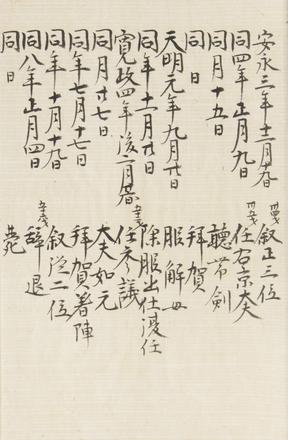 安永三年十二月九日 叙正三位
同四年正月九日 任右京大夫
同月十五日 聴帯剣
同日 拝賀
天明元年九月廿日 服解 母
同年十一月廿日 除服出仕復任
寛政四年後二月 任参議
同月廿七日 大夫如元
同年七月十七日 拝賀著陣
同年十月十九日 叙従二位
同八年正月四日 辞退
同日 薨